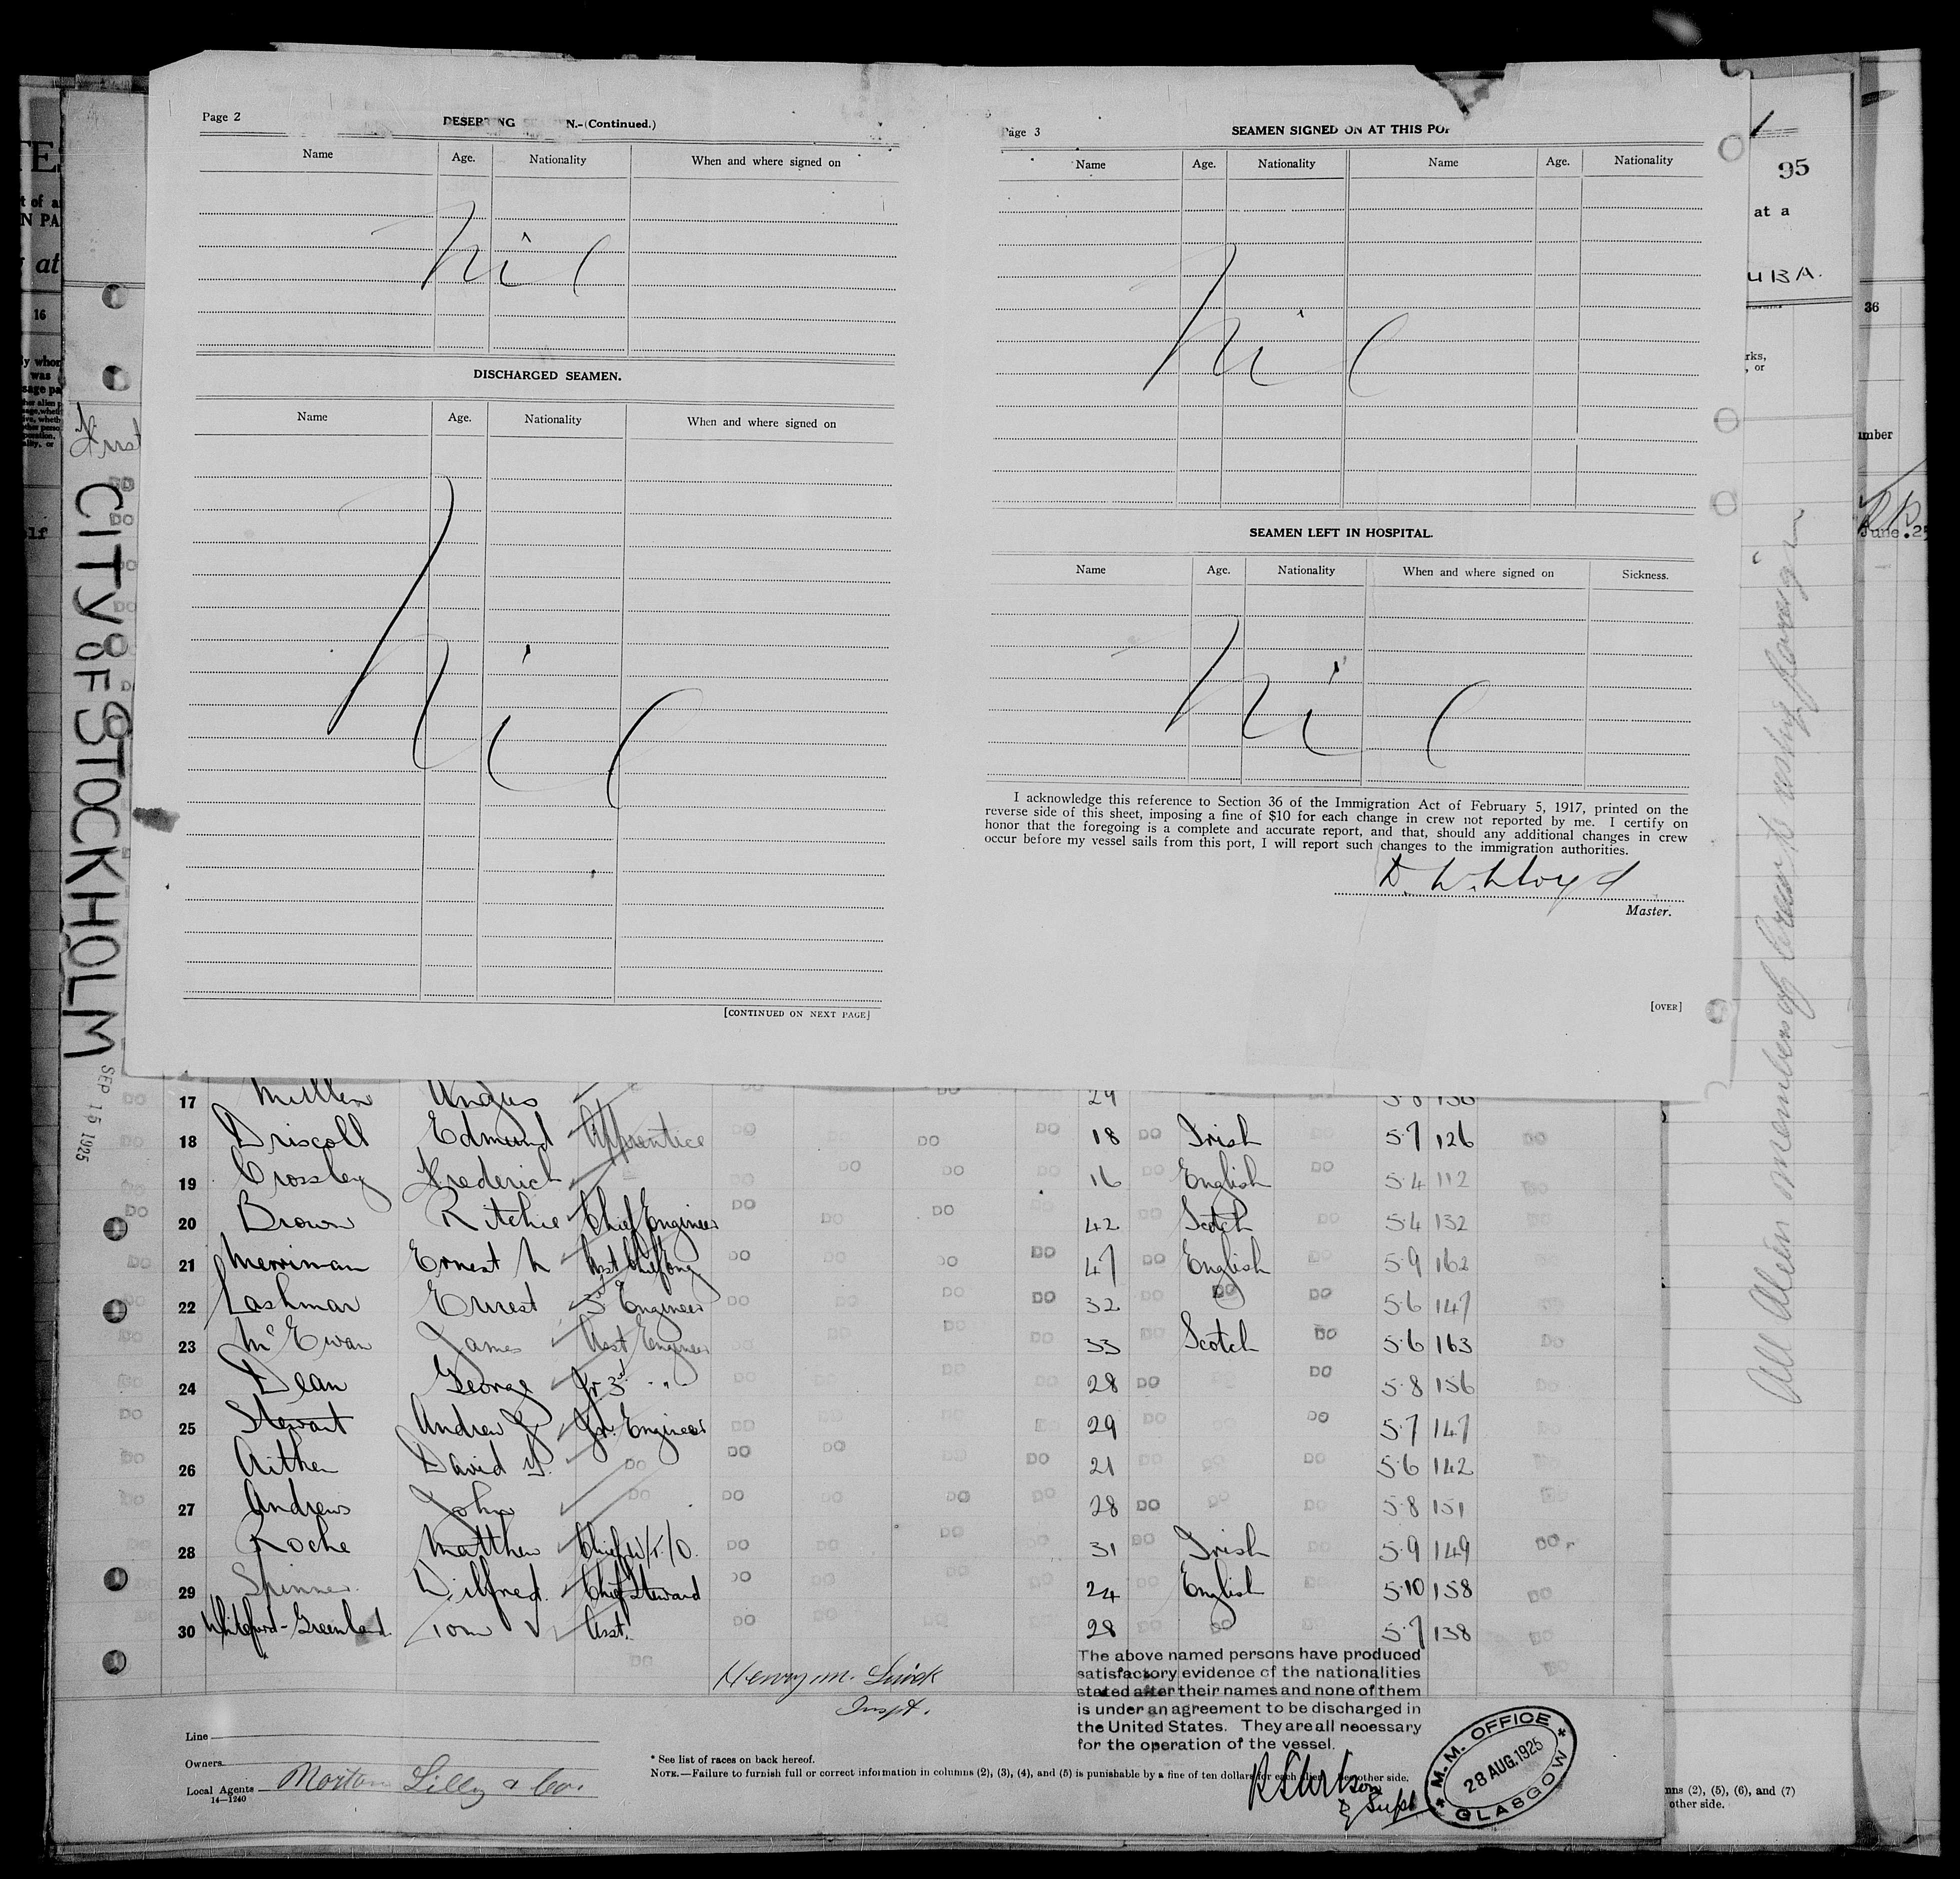 Page 2
DESERTING N.-(Continued.)
Name Age. Nationality When and where signed on
nil
DISCHARGED SEAMEN.
Name Age. Nationality When and where signed on
nil
[CONTINUED ON NEXT PAGE]
Page 3
SEAMEN SIGNED ON AT THIS POR
Name Age. Nationality Name Age. Nationality
nil
SEAMEN LEFT IN HOSPITAL.
Name Age. Nationality When and where signed on Sickness.
nil
I acknowledge this reference to Section 36 of the Immigration Act of February 5, 1917, printed on the
reverse side of this sheet, imposing a fine of $10 for each change in crew not reported by me. I certify on
honor that the foregoing is a complete and accurate report, and that, should any additional changes in crew
occur before my vessel sails from this port, I will report such changes to the immigration authorities.
Lloyd
Master.
[OVER]
95
at a
UBA.
rks,
, or
36
mber
June.25
16
y whom
was
sage pa
at
CITY OF STOCKHOLM
SEP 15 1925
All Alien members of Crew to
17 Millen Angus 24 5 8 136
18 Driscoll Edmund Apprentice DO DO DO 18 DO Irish 5·7 126 DO
19 Crossley Frederick DO DO 16 DO English DO 5·4 112 DO
20 Brown Ritchie Chief Engineer DO DO DO 42 DO Scotch DO 5·4 132
21 Merriman Ernest Asst Chief Eng DO DO DO DO 47 DO English 5·9 162
22 Lashmar Ernest 3rd Engineer DO DO DO DO 32 DO DO DO 5·6 147
23 McEwan James Asst Engineer DO DO DO 33 DO Scotch DO 5·6 163 DO
24 Dean George Jr 3rd " DO DO DO DO 28 DO DO 5·8 156 DO
25 Stewart Andrew Jr. Engineer DO DO 29 DO DO 5·7 147
26 Aitken David DO DO DO DO 21 DO DO DO 5·6 142
27 Andrews John DO DO DO DO DO 28 DO DO DO 5·8 151
28 Roche Matthew Chief W/T/O. DO DO DO 31 DO Irish DO 5·9 149 DO
29 Skinner Wilfred. Chief Steward DO DO DO 24 DO English DO 5·10 158 DO
30 Whiteford-Greenland Tom Asst. DO DO DO DO 28 DO DO 5·7 138 DO
Henry M.
Inspt.
The above named persons have produced
satisfactory evidence of the nationalities
stated after their names and none of them
is under an agreement to be discharged in
the United States. They are all necessary
for the operation of the vessel.
Supt
M.M. OFFICE
28 AUG. 1925
GLASGOW
Line
Owners
Local Agents Morton Lilly & Co.
14—1240
* See list of races on back hereof.
NOTE.—Failure to furnish full or correct information in columns (2), (3), (4), and (5) is punishable by a fine of ten dollars for each alien other side.
ns (2), (5), (6), and (7)
other side.